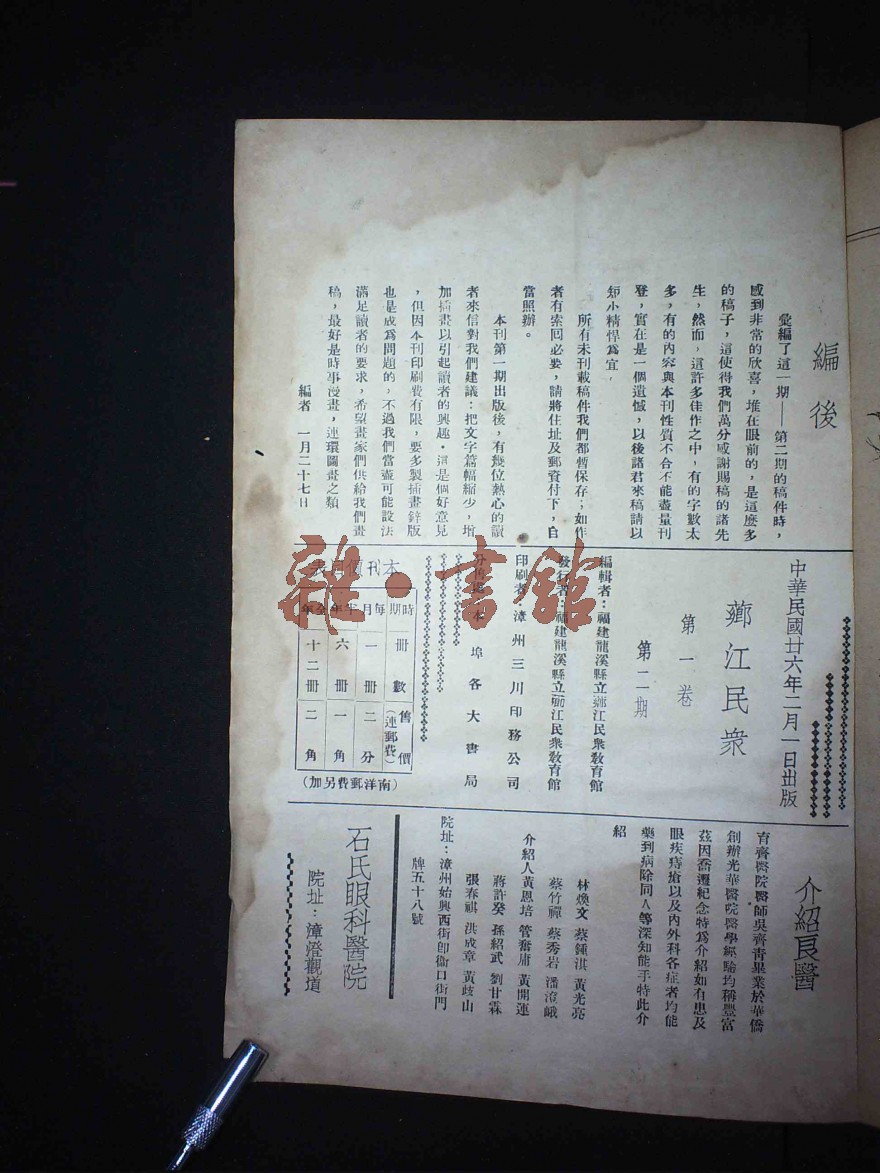 編後
彙編了這一期——第二期的稿件時，
感到非常的欣喜，堆在眼前的，是這麼多
的稿子，這使得我們萬分感謝賜稿的諸先
生，然而，這許多佳作之中，有的字數太
多，有的內容與本刊性質不合不能盡量刊
登，實在是一個遺憾，以後諸君來稿請以
短小精悍爲宜，
所有未刊載稿件我們都暫保存；如作
者有索回必要，請將住址及郵資付下，自
當照辦。
本刊第一期出版後，有幾位熱心的讀
者來信對我們建議：把文字篇幅縮少，增
加插畫以引起讀者的興趣。這是個好意見
，但因本刊印刷費有限，要多製插畫鋅版
也是成爲問題的，不過我們當盡可能設法
滿足讀者的要求，希望畫家們供給我們畫
稿，最好是時事漫畫，連環圖畫之類
編者 一月二十七日
中華民國廿六年二月一日出版
薌江民衆
第一卷
第二期
編輯者：福建龍溪縣立薌江民衆教育館
發行者：福建龍溪縣立薌江民衆教育館
印刷者：漳州三川印務公司
本埠各大書局
本刊價目表
時期 每月 半年 全年
冊數 一冊 六冊 十二冊
售價（連郵費） 二分 一角 二角
（南洋郵費另加）
雜·書館
介紹良醫
育齊醫院醫師吳齊青畢業於華僑
創辦光華醫院醫學經驗均稱豐富
茲因喬遷紀念特爲介紹如有患及
眼疾痔瘡以及內外科各症者均能
藥到病除同人等深知能手特此介
紹
林煥文 蔡鍾淇 黃光亮
蔡竹禪 蔡秀岩 潘澄峨
介紹人 黃恩培 管奮庸 黃開運
蔣許癸 孫紹武 劉甘霖
張春祺 洪成章 黃歧山
院址：漳州始興西街卽衙口街門
牌五十八號
石氏眼科醫院
院址：漳澄觀道